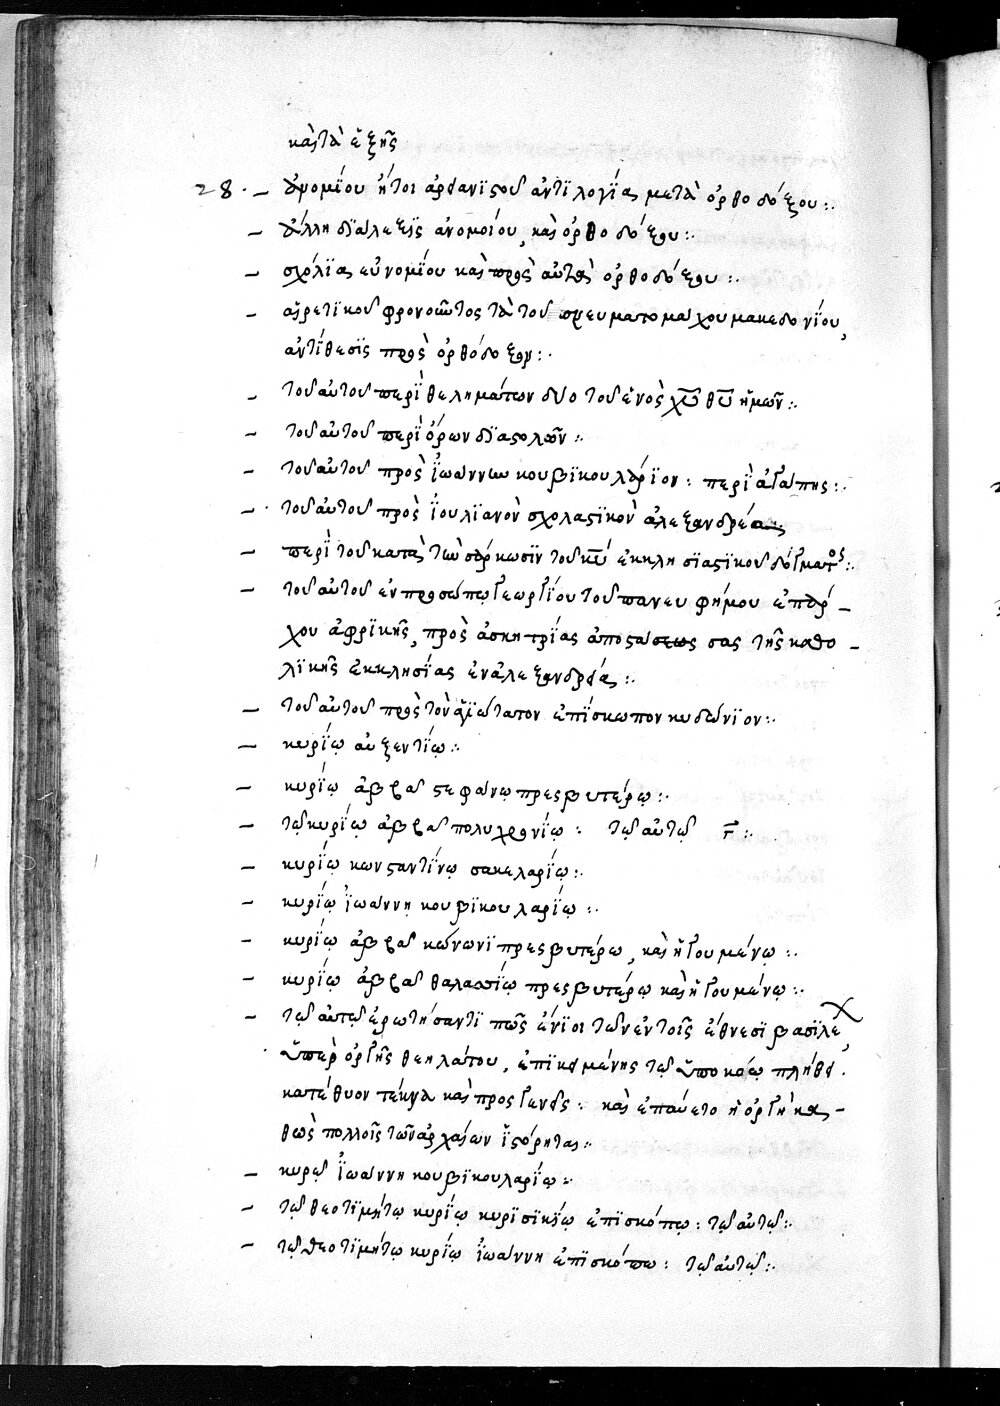 καὶ τὰ ἑξῆς
28. – ἀνομίου ἤτοι ἀρϊανϊστοῦ ἀντϊλογΐας μετὰ ὀρθοδόξου :.
– ἄλλη δϊάλεξϊς ἀνομοίου, καὶ ὀρθοδόξου :.
– σχόλϊα εὐνομΐου καὶ πρὸς αὐτὰ ὀρθοδόξου :.
– αἱρετϊκοῦ φρονοῦντος τὰ τοῦ πνευματομάχου μακεδονΐου,
ἀντΐθεσϊς πρὸς ὀρθόδοξον :.
– τοῦ αὐτοῦ περὶ θελημάτων δύο τοῦ ἑνὸς χ̅υ̅ θ̅υ̅ ἡμῶν :.
– τοῦ αὐτοῦ περὶ ὅρων δϊαστολῶν :.
– τοῦ αὐτοῦ πρὸς ἰωάννην κουβϊκουλάρϊον : περὶ ἀγάπης :.
– τοῦ αὐτοῦ πρὸς ἰουλϊανὸν σχολαστϊκὸν ἀλεξανδρέα
– περὶ τοῦ κατὰ τὴν σάρκωσϊν τοῦ κ̅υ̅ ἐκκλησϊαστϊκοῦ δόγματος :.
– τοῦ αὐτοῦ ἐν προσώπῳ γεωργΐου τοῦ πανευφήμου ἐπάρ –
χου ἀφρϊκῆς, πρὸς ἀσκητρΐας ἀποστάσας τῆς καθο –
λϊκῆς ἐκκλησίας ἐν ἀλεξανδρείᾳ :.
– τοῦ αὐτοῦ πρὸς τὸν ἁγϊώτατον ἐπΐσκωπον κυδώνϊον :.
– κυρΐῳ αὐξεντΐῳ :.
– κυρΐῳ ἀββᾶ στεφάνῳ πρεσβυτέρῳ :.
– τῷ κυρΐῳ ἀββᾶ πολυχρονΐῳ : τῷ αὐτῷ γ̅ :.
– κυρΐῳ κωνσταντίνῳ σακελαρΐῳ :.
– κυρΐῳ ἰωάννῃ κουβϊκουλαρΐῳ :.
– κυρΐῳ ἀββᾶ κώνωνϊ πρεσβυτέρω, καὶ ἡγουμένῳ :.
– κυρΐῳ ἀββᾶ θαλασσΐῳ πρεσβυτέρῳ καὶ ἡγουμένῳ :.
– τῷ αὐτῷ ἐρωτήσαντϊ πῶς ἔνϊοι τῶν ἐν τοῖς ἔθνεσϊ βασϊλε,
ὑπὲρ ὀργῆς θεηλάτου, ἐπϊκειμένης τῷ ὑποκάῳ πλήθει.
κατέθυον τέκνα καὶ προσγενεῖς : καὶ ἐπαύετο ἡ ὀργὴ κα –
θὼς πολλοῖς τῶν ἀρχαίων ἱστόρηται :.
– κυρῷ ἰωάννη κουβϊκουλαρΐῳ :.
– τῷ θεοτϊμήτῳ κυρΐῳ κυρϊσϊκΐῳ ἐπϊσκόπῳ : τῷ αὐτῷ :.
– τῷ θεοτϊμήτῳ κυρΐῳ ἰωάννη ἐπϊσκόπω : τῷ αὐτῷ :.